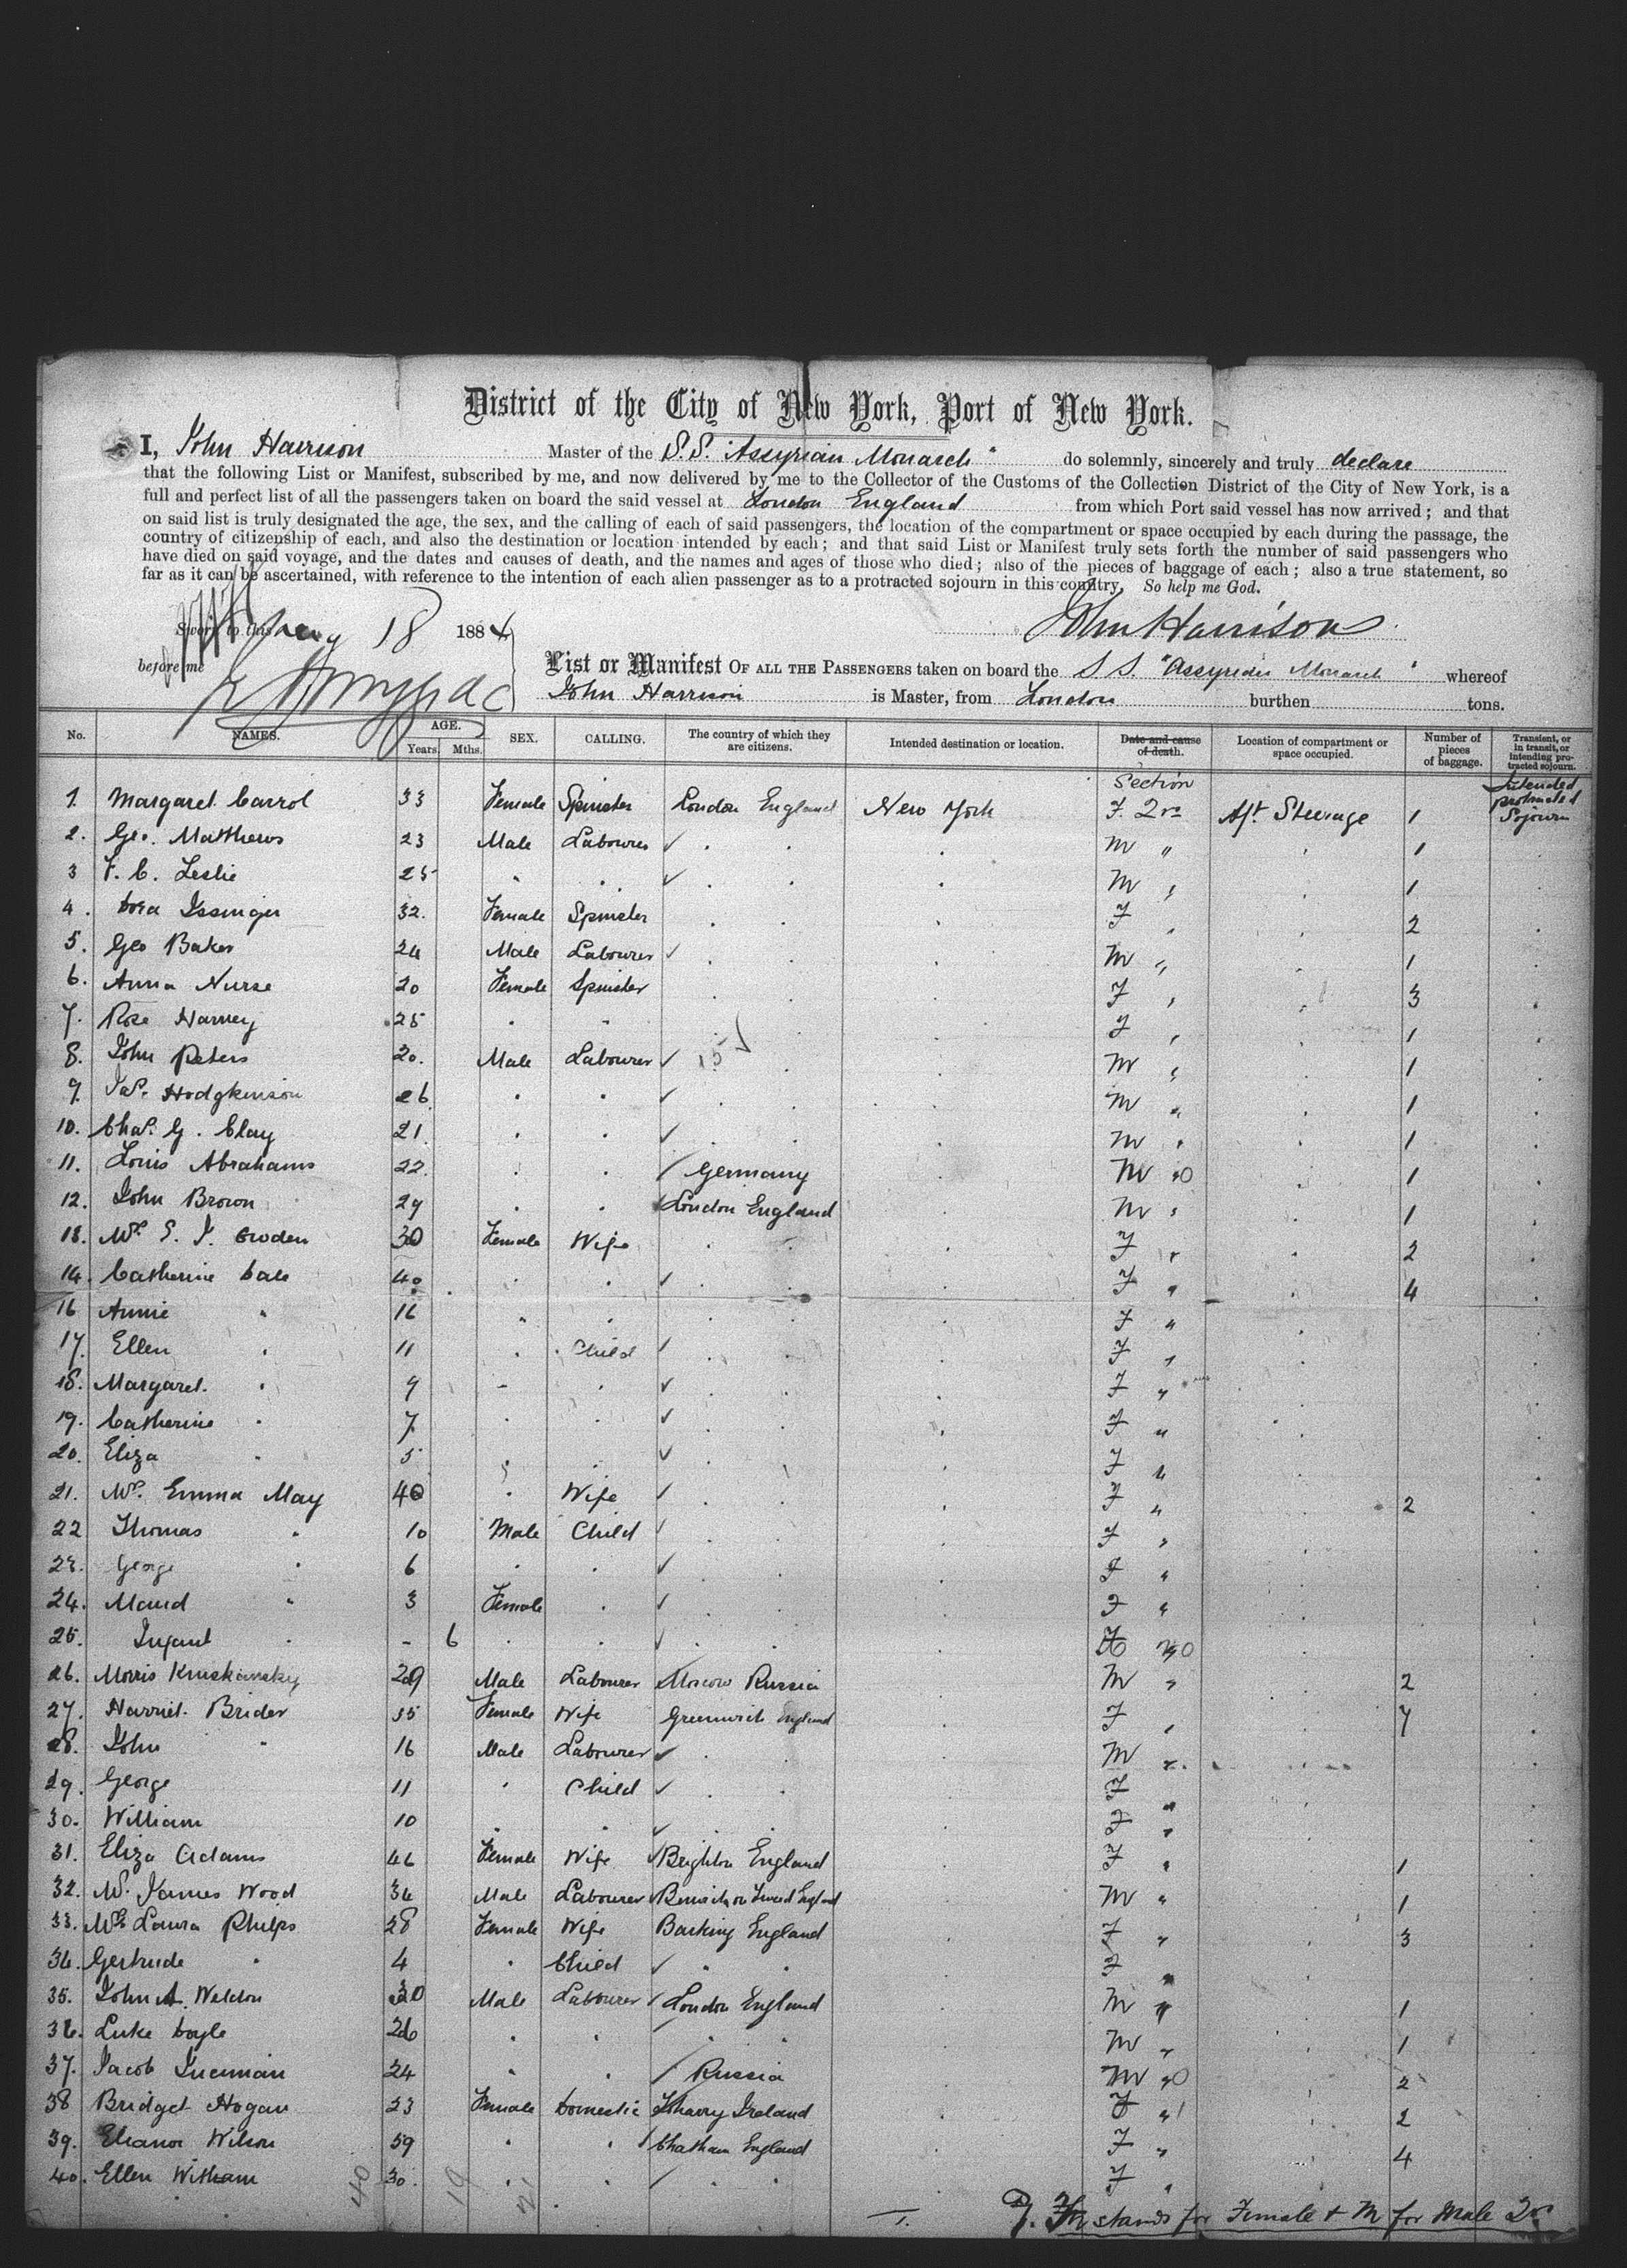 District of the City of New York, Port of New York.
I, John Harrison Master of the S.S. "Assyrian Monarch" do solemnly, sincerely and truly declare
that the following List or Manifest, subscribed by me, and now delivered by me to the Collector of the Customs of the Collection District of the City of New York, is a
full and perfect list of all the passengers taken on board the said vessel at London England from which Port said vessel has now arrived; and that
on said list is truly designated the age, the sex, and the calling of each of said passengers, the location of the compartment or space occupied by each during the passage, the
country of citizenship of each, and also the destination or location intended by each; and that said List or Manifest truly sets forth the number of said passengers who
have died on said voyage, and the dates and causes of death, and the names and ages of those who died; also of the pieces of baggage of each; also a true statement, so
far as it can be ascertained, with reference to the intention of each alien passenger as to a protracted sojourn in this country. So help me God.
Sworn to this 18 1884 John Harrison
before me
List or Manifest OF ALL THE PASSENGERS taken on board the S S. "Assyrian Monarch" whereof
John Harrison is Master, from London burthen tons.
No. NAMES. AGE. Years. Mths. SEX. CALLING. The country of which they are citizens. Intended destination or location. Date and cause of death. Location of compartment or space occupied. Number of pieces of baggage. Transient, or in transit, or intending protracted sojourn.
Section Intended protracted Sojourn
1. Margaret Carrol 33 Female Spinster London England New York F. 2 Aft Steerage 1
2. Geo. Matthews 23 Male Labourer ✓ . . . M " 1
3 F. C. Leslie 25 . . ✓ . . . M " 1
4. Dora Issinger 32. Female Spinster . . . F " 2
5. Geo Baker 24 Male Labourer ✓ . . M " 1
6. Anna Nurse 20 Female Spinster . . . F " 3
7. Rose Harvey 25 . . . F " 1
8. John Peters 20. Male Labourer ✓ 15 ✓ M " 1
9. Jas. Hodgkinson 26 . . ✓ . . M " 1
10. Chas. G. Clay 21 . . ✓ . . M " 1
11. Louis Abrahams 22. . . ✓ Germany . M " 1
12. John Brown 29 . . ✓ London England . M " 1
13. Mrs E. J. Croden 30 Female Wife . . . F " 2
14. Catherine Dale 40 . . ✓ . F " 4
16 Annie " 16 " . . F "
17. Ellen " 11 . Child ✓ . . F "
18. Margaret " 9 . . ✓ . . F "
19. Catherine " 7 . . ✓ . . F "
20. Eliza " 5 . . ✓ . . F "
21. Mrs. Emma May 40 . Wife ✓ . . F " 2
22 Thomas " 10 Male Child ✓ . . F "
23. George " 6 . . ✓ . . F "
24. Maud " 3 Female . ✓ . . F "
25. Infant " - 6 . . ✓ . .
26. Morris Kruskansky 29 Male Labourer Moscow Russia . M " 2
27. Harriet Brider 35 Female Wife Greenwich England . F " 7
28. John " 16 Male Labourer ✓ . . M "
29. George 11 . Child ✓ . . F "
30. William 10 . . ✓ . . F "
31. Eliza Adams 46 Female Wife ✓ Brighton England . F " 1
32. Mr. James Wood 34 Male Labourer ✓ Berwick on Tweed England . M " 1
33. Mrs Laura Philps 28 Female Wife Barking England . F " 3
34. Gertrude " 4 . Child ✓ . . F "
35. John A. Weldon 30 Male Labourer ✓ London England . M " 1
36. Luke Doyle 26 . . . . M " 1
37. Jacob 24 . . ✓ Russia . M " 2
38 Bridget Hogan 23 Female Domestic Ireland . F " 2
39. Eleanor Wilson 59 . . ✓ Chatham England . F " 4
40. Ellen Witham 30. . . ✓ . . F "
40 19 21
F. stands for Female & M for Male